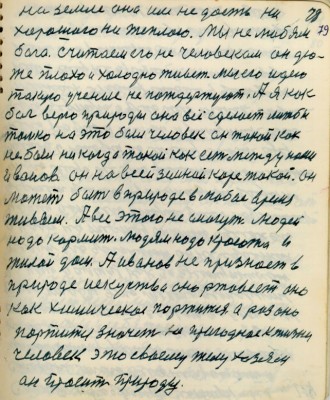 79
на земле она им не дасть ни
хорошого ни теплого. Мы не любим
бога. считаем его не человеком он то-
же плохо и холодно живет. мы его идею
такую учение не поддержуют. А я как
был веро природы она всё сделает лишби
только на это был человек он такой как
не был никогда такой как есть между нами
Иванов он на всей земной коре такой. он
может быть в природе в любое время
живым. А все этого не смогут. Людей
надо кормит. Людям надо красота и
жилой дом. А иванов не признает в
природе искуства оно
как химическое портится а раз оно
портится значет не пригодное к жизни
человек это своему телу хозяин
он просить природу.